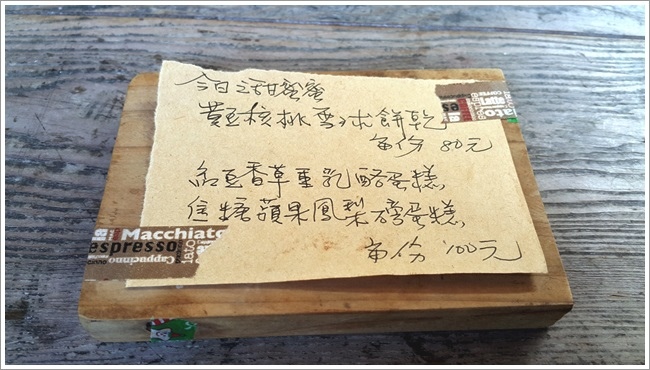 今日之甜蜜蜜
黃豆核桃雪球餅乾
每份 80元
紅豆香草重乳酪蛋糕
焦糖蘋果鳳梨磅蛋糕
每份 100元
Macchiato
espresso
Cappuccino